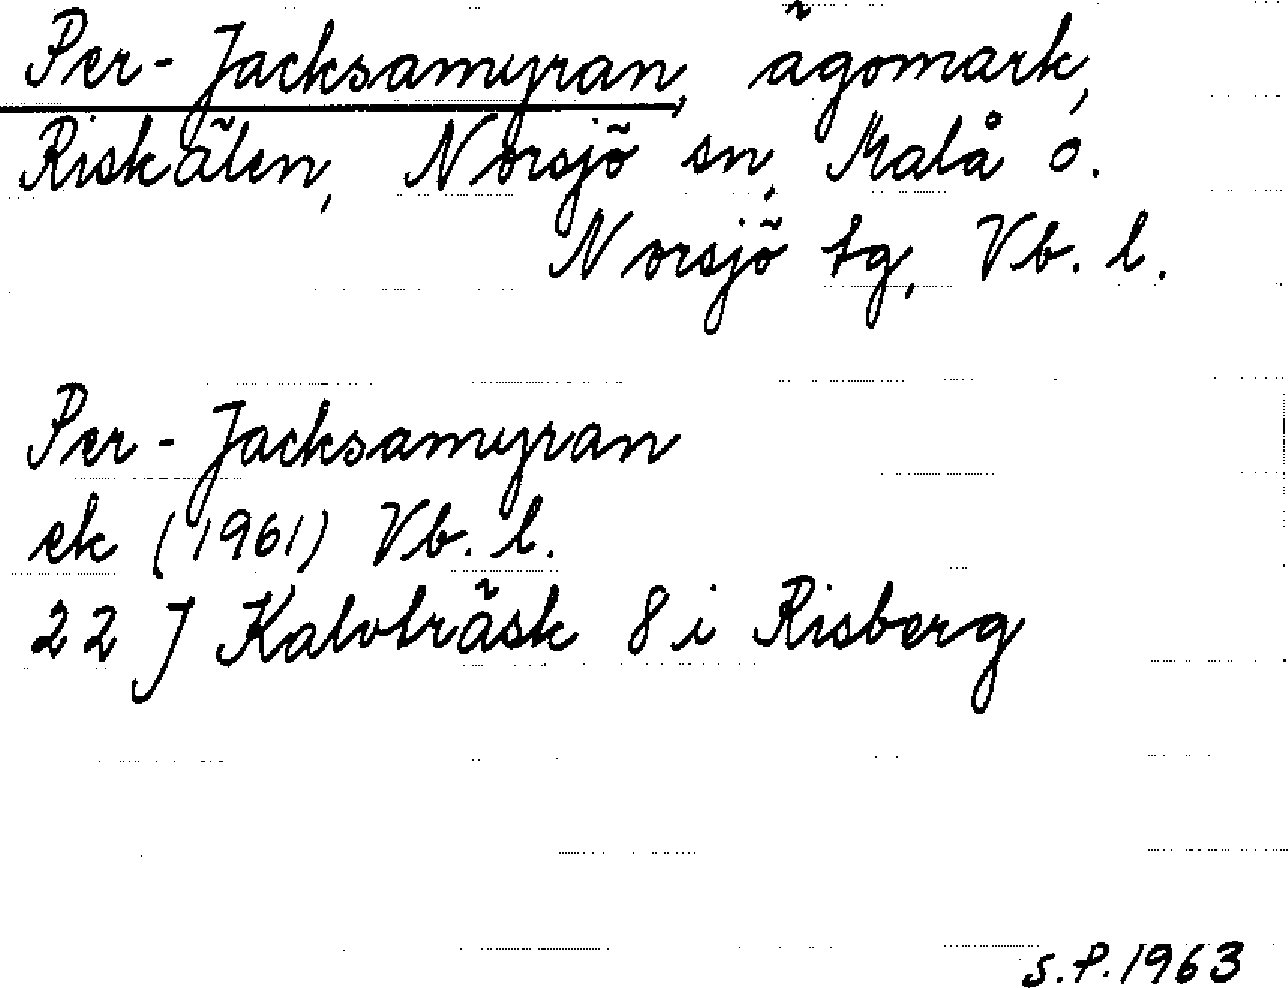 Per-Jacksamyran, ägomark,
Riskälen, Norsjö sn, Malå o.
Norsjö tg, Vb. l.
Per-Jacksamyran
ek (1961) Vb. l.
22 J Kalvträsk 8 i Risberg
S.P. 1963